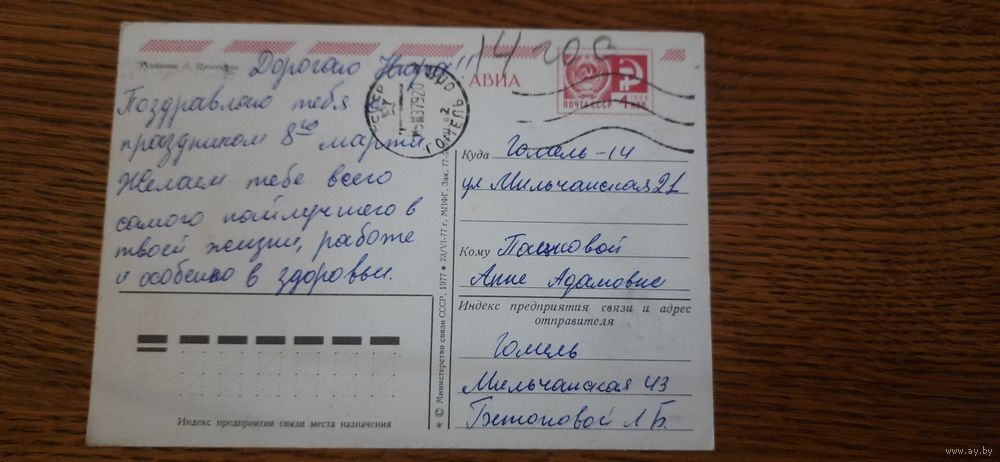 Дорогаю Нюра!!
Поздравляю тебя
праздником 8ое марта
Желаем тебе всего
самого наилучшего в
твоей жизни, работе
и особенно в здоровьи.
14 20
АВИА
ПОЧТА СССР 4 КОП
1966
СССР
ГОМЕЛЬ
Куда Гомель-14
ул Мильчанская 21
Кому Пашковой
Анне Адамовне
Индекс предприятия связи и адрес отправителя
Гомель
Мильчанская 43
Бетоновой Л Б.
Индекс предприятия связи места назначения
* © Министерство связи СССР, 1977 • 23/VI-77 г. МПФГ. Зак. 77-
www.ay.by